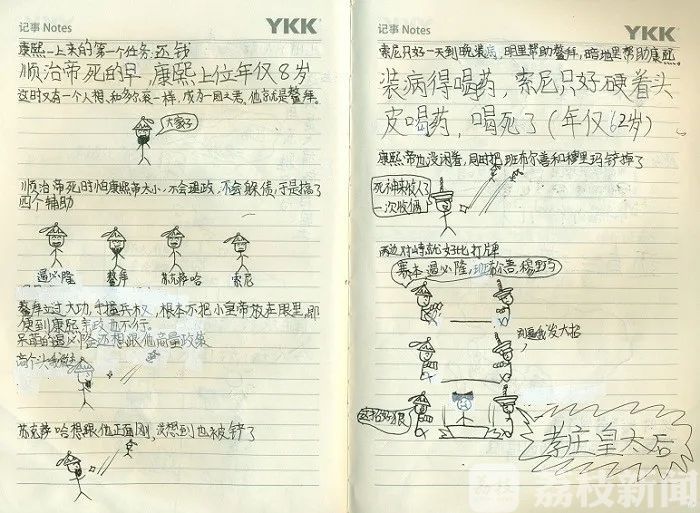 记事 Notes
YKK
康熙一上来的第一个任务:还钱
顺治帝死的早,康熙上位年仅8岁
这时又有一个人想和多尔衮一样,成为一国之君,他就是鳌拜。
大家好
顺治帝死时怕康熙帝太小,不会理政,不会躲债,于是搞了
四个辅助
遏必隆
鳌拜
苏克萨哈
索尼
鳌拜立过大功,手握兵权,根本不把小皇帝放在眼里,即
使到康熙亲政也不行。
呆萌的遏必隆还想跟他商量政策
苏克萨哈想跟他正面刚,没想到也被铲了
记事 Notes
YKK
索尼只好一天到晚装病,明里帮助鳌拜,暗地里帮助康熙
装病得喝药,索尼只好硬着头
皮喝药,喝死了(年仅62岁)
康熙帝也没闲着,同时把班布尔善和穆里玛铲掉了
死神来收人了
一次收俩
两边对峙就好比打牌
鳌拜:遏必隆,班布尔善,穆里玛
别逼我发大招
这招好狠
孝庄皇太后
荔枝新闻